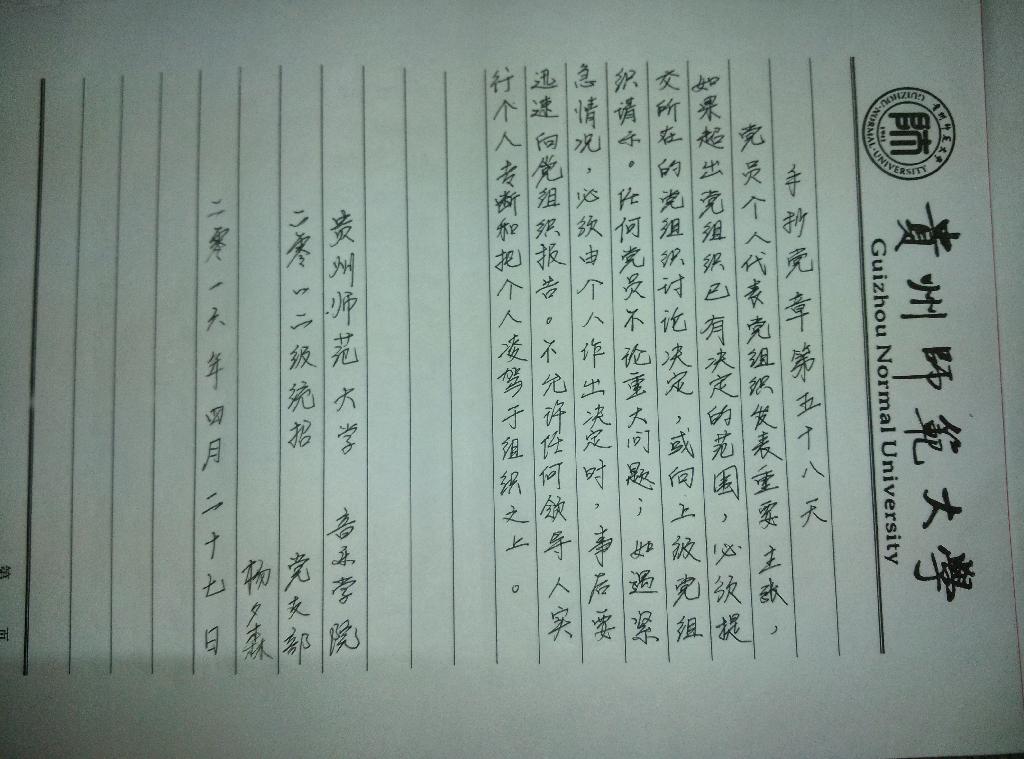 貴州師範大學
Guizhou Normal University
貴州師範大學
GUIZHOU·NORMAL·UNIVERSITY
1941
手抄党章第五十八天
党员个人代表党组织发表重要主张，
如果超出党组织已有决定的范围，必须提
交所在的党组织讨论决定，或向上级党组
织请示。任何党员不论重大问题；如遇紧
急情况，必须由个人作出决定时，事后要
迅速向党组织报告。不允许任何领导人实
行个人专断和把个人凌驾于组织之上。
贵州师范大学 音乐学院
二零一二级统招 党支部
杨夕森
二零一六年四月二十七日
第 页